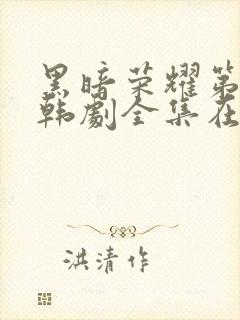 黑暗荣耀第
韩劇全集在
洪清作